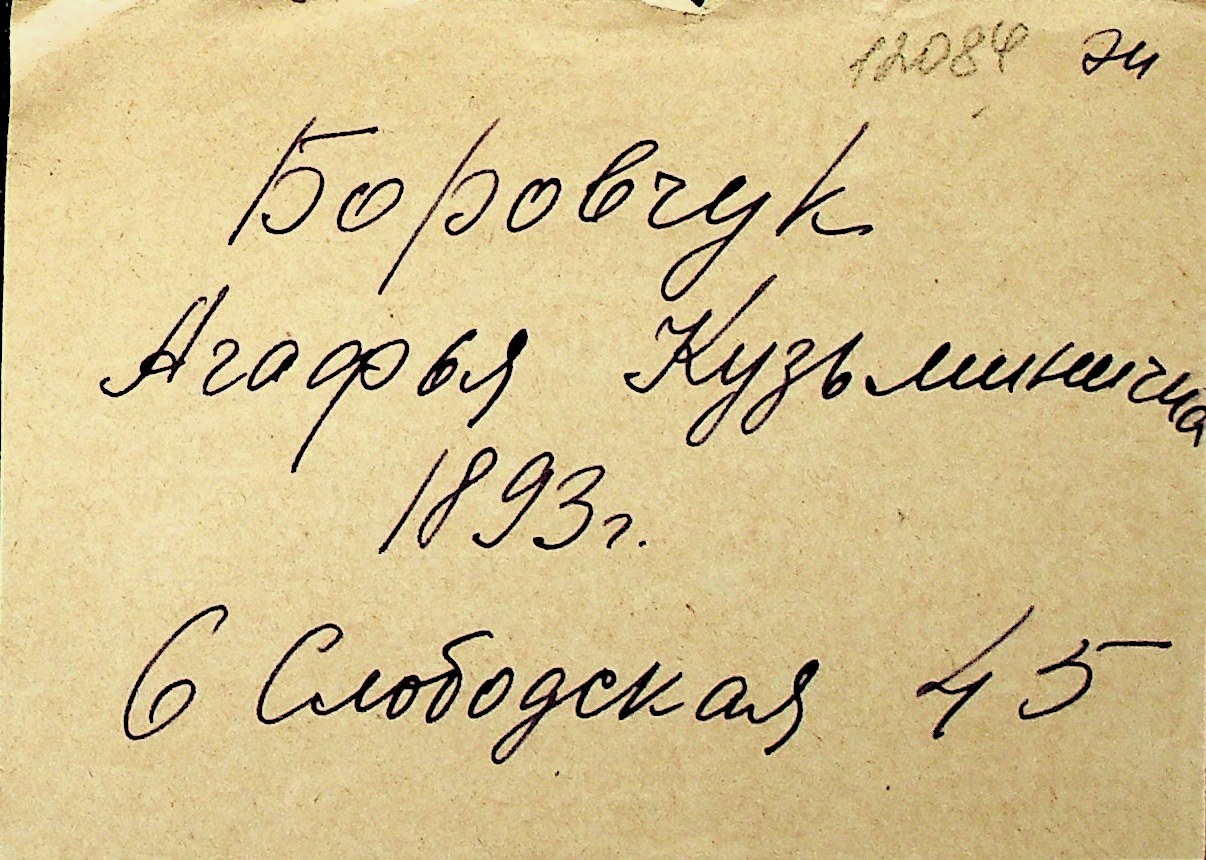 12084 эи
Боровчук
Агафья Кузьминична
1893г.
6 Слободская 45